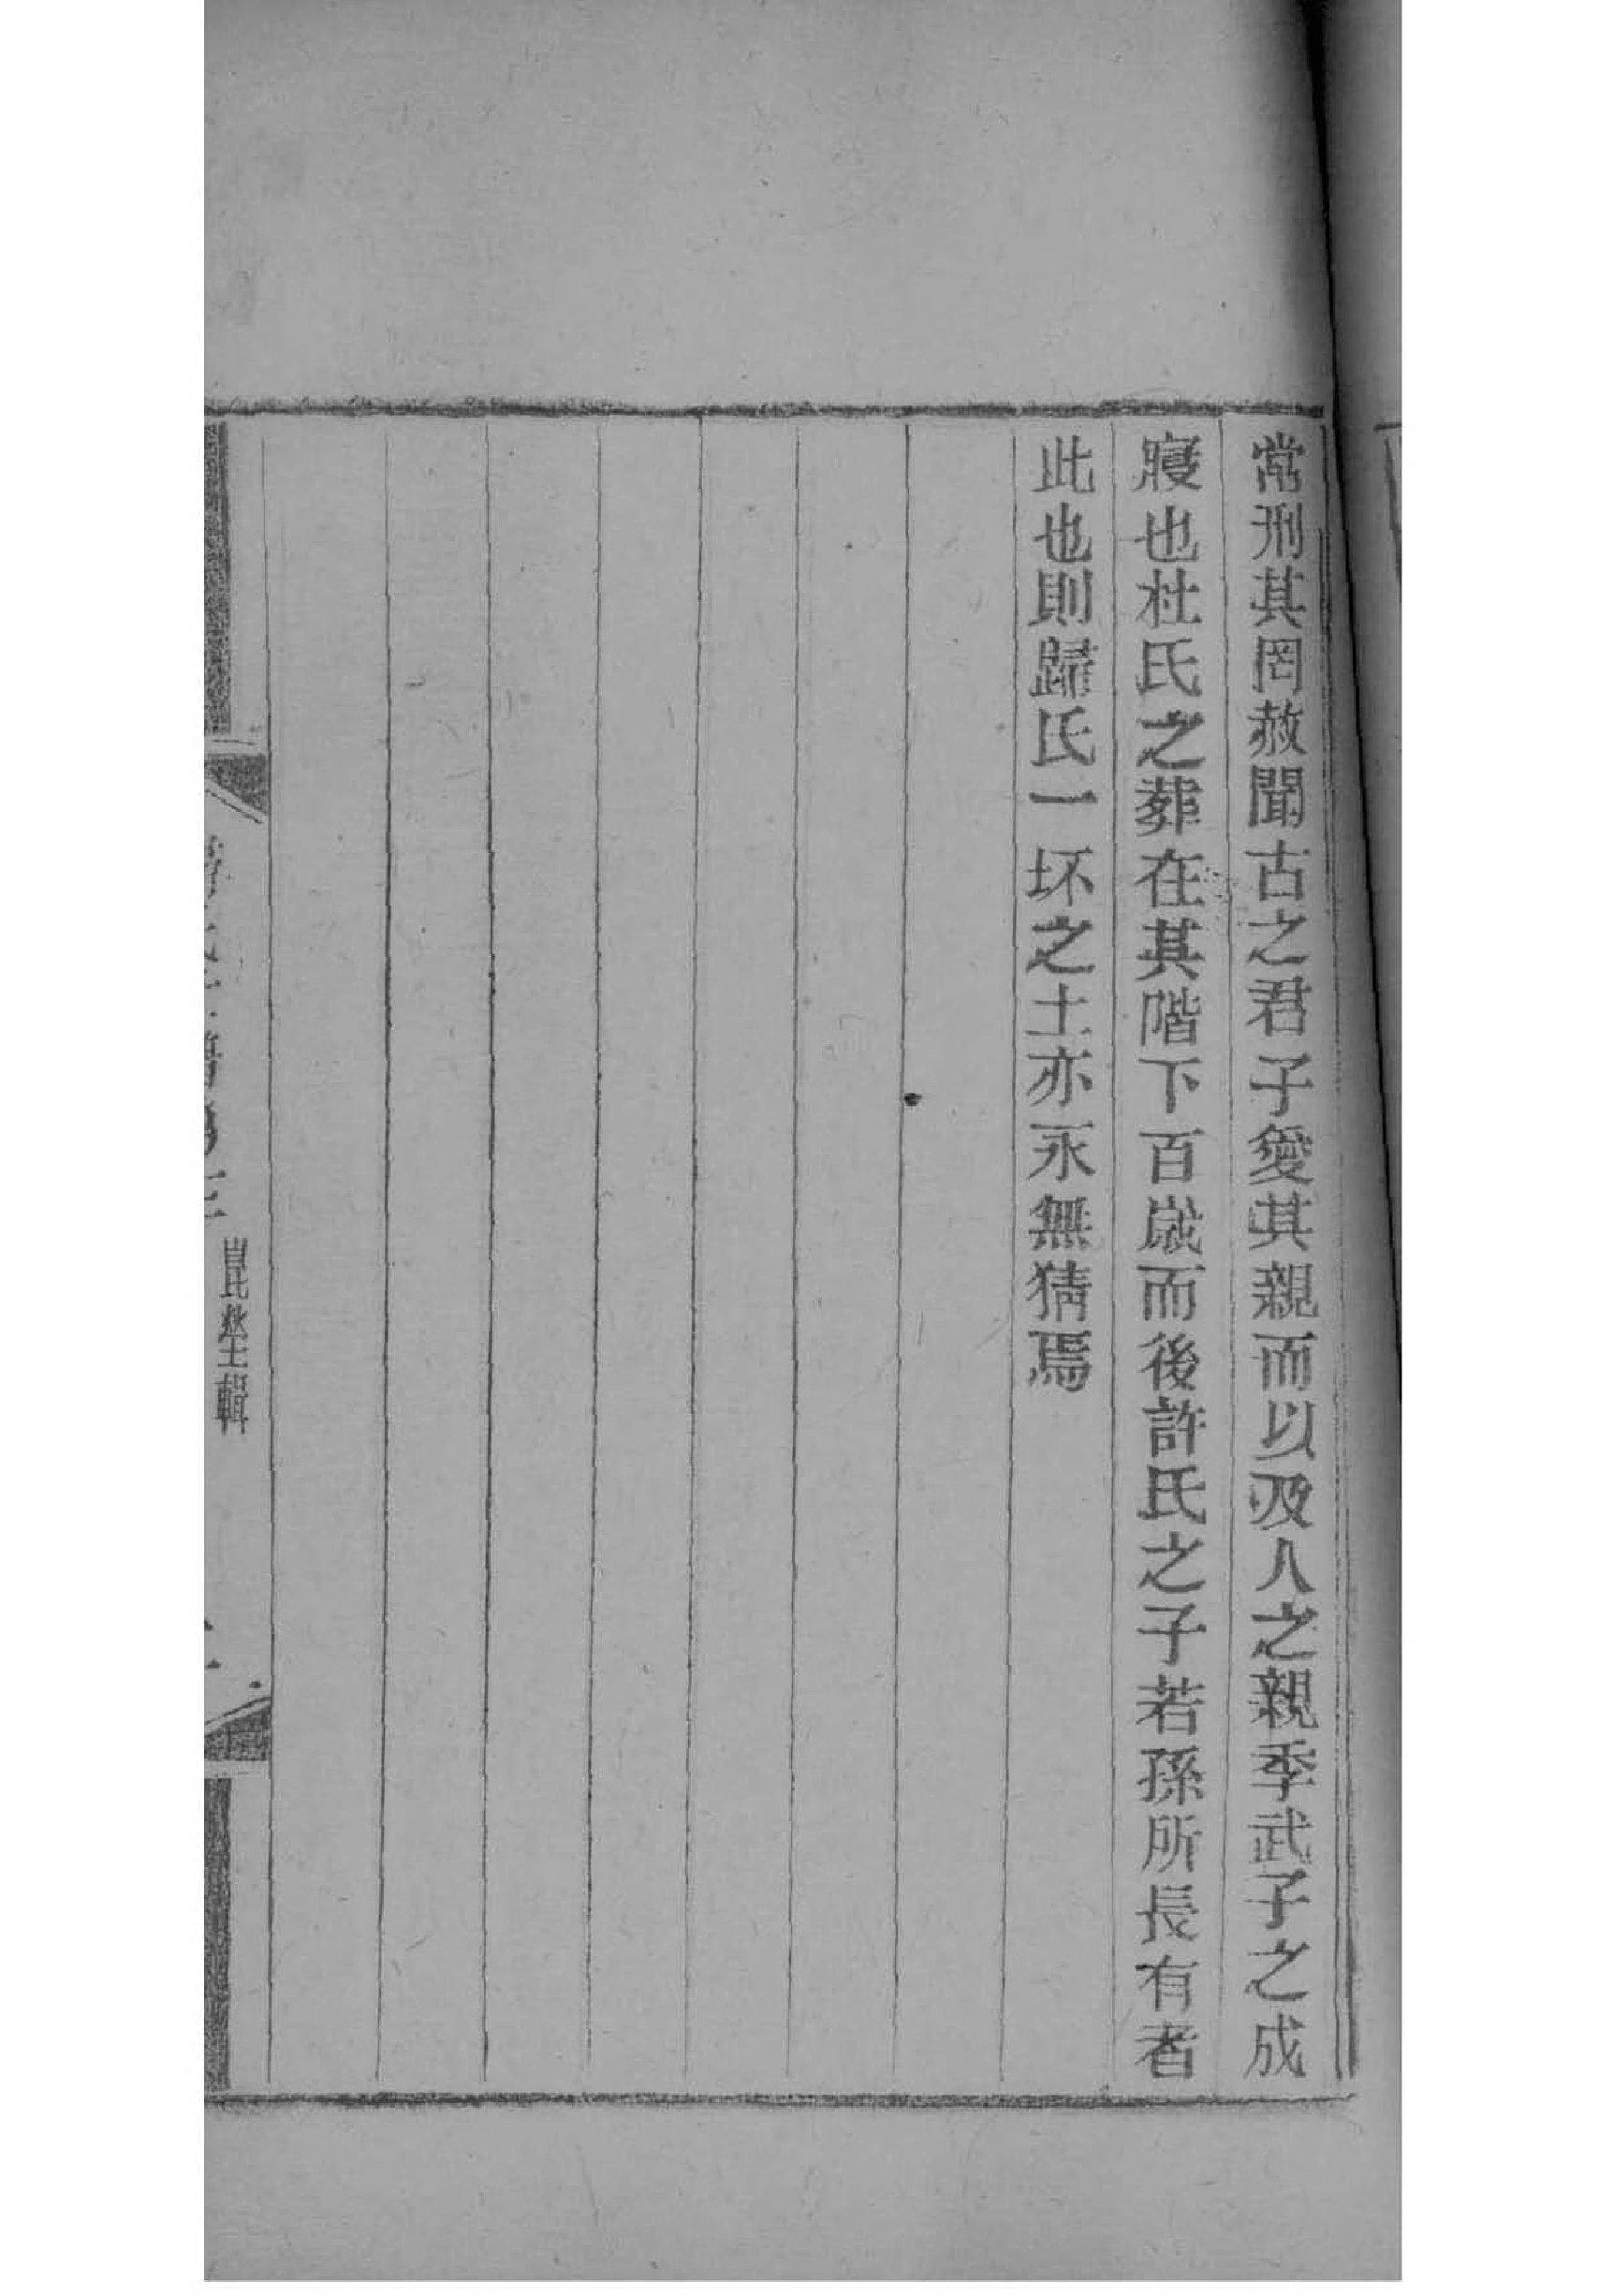 常刑其罔赦聞古之君子愛其親而以及人之親季武子之成
寢也杜氏之葬在其階下百歲而後許氏之子若孫所長有者
此也則歸氏一坏之土亦永無猜焉